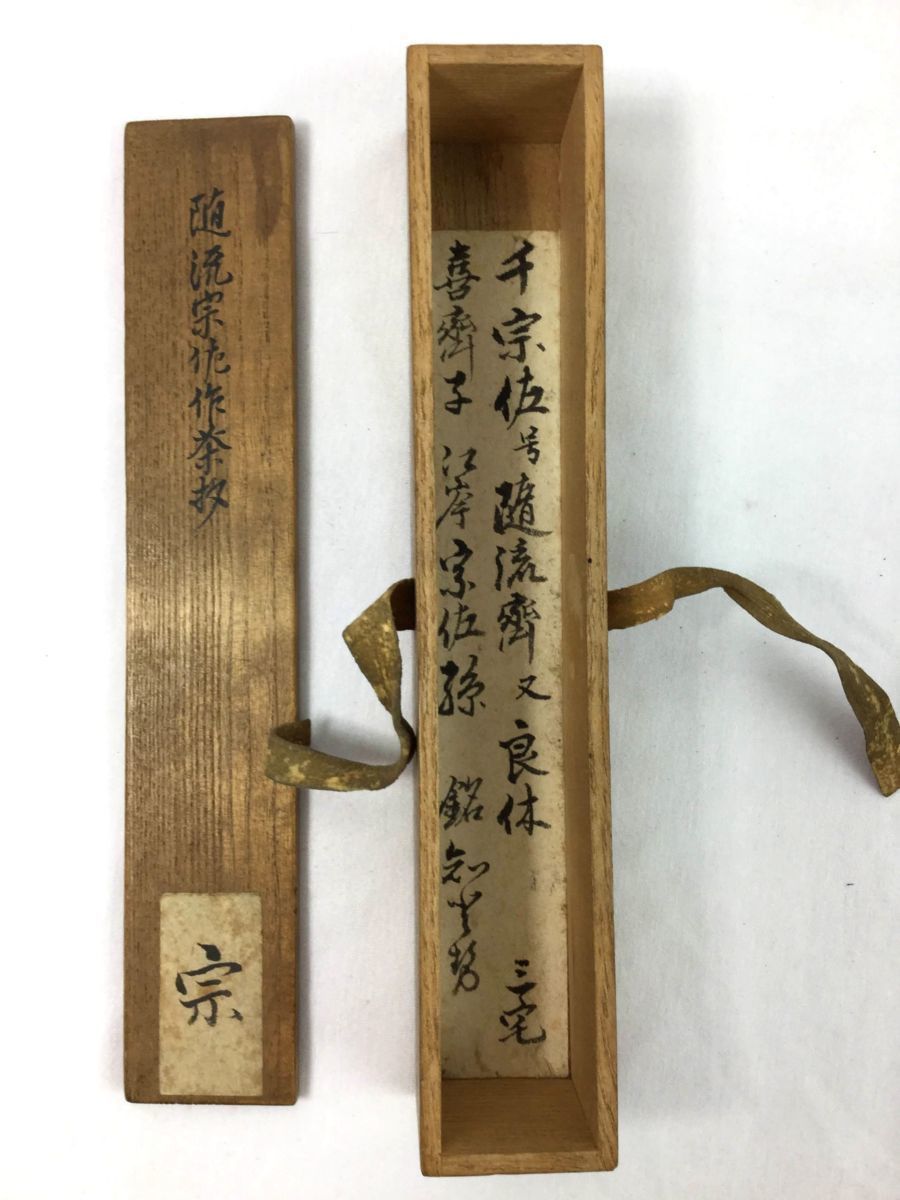 随流宗佐作茶杓
宗
千宗佐号随流齋又良休 三宅
喜齋子 江岑宗佐孫 銘